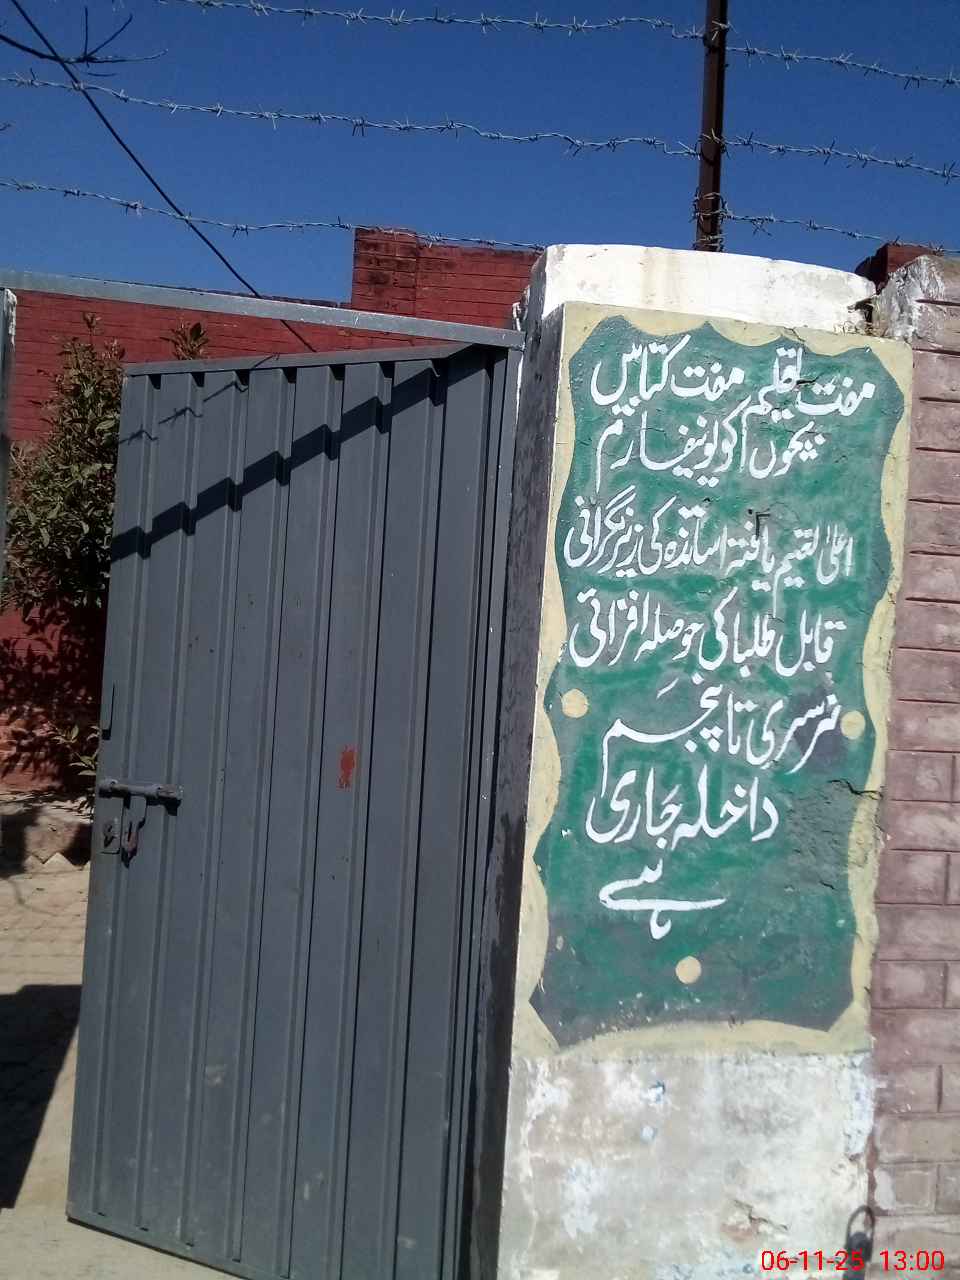 مفت تعلیم مفت کتابیں
بچوں کو یونیفارم
اعلیٰ تعلیم یافتہ اساتذہ کی زیر نگرانی
قابل طلبا کی حوصلہ افزائی
نرسری تا پنجم
داخلہ جاری
ہے
06-11-25 13:00